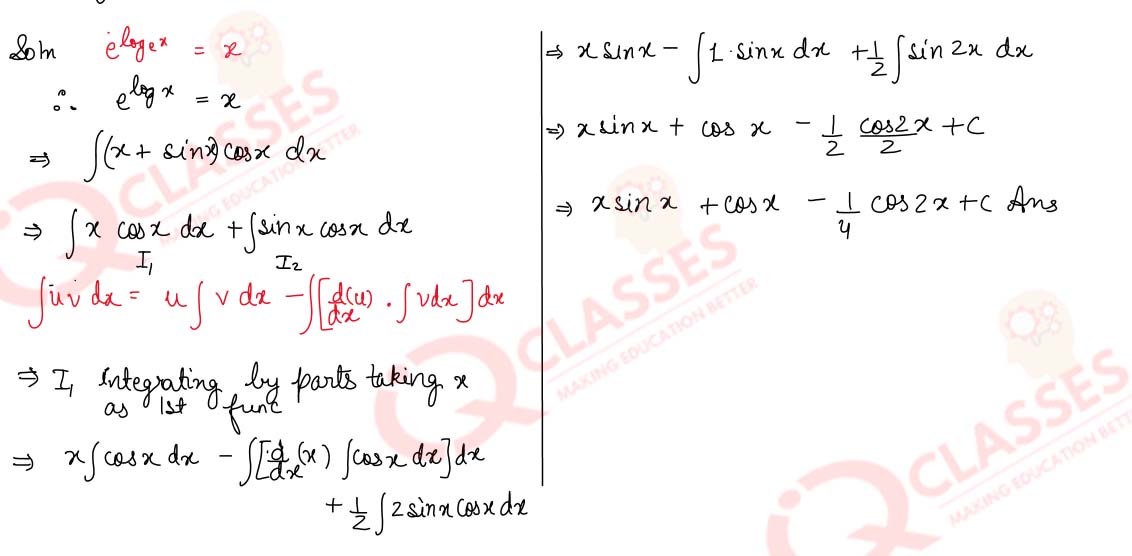 Soln e^{log_e x} = x
∴ e^{log x} = x
⇒ ∫(x + sinx) cosx dx
⇒ ∫ x cosx dx + ∫ sinx cosx dx
I₁ I₂
∫ u v dx = u ∫ v dx − ∫[d(u)/dx · ∫ vdx] dx
⇒ I₁ integrating by parts taking x
as 1st func
⇒ x∫cosx dx − ∫[d/dx (x) ∫cosx dx] dx
+ 1/2 ∫ 2 sinx cosx dx
⇒ x sinx − ∫ 1 · sinx dx + 1/2 ∫ sin 2x dx
⇒ x sinx + cos x − 1/2 cos2x/2 + C
⇒ x sin x + cosx − 1/4 cos2x + C Ans
CLASSES
MAKING EDUCATION BETTER
CLASSES
MAKING EDUCATION BETTER
CLASSES
MAKING EDUCATION BETTER